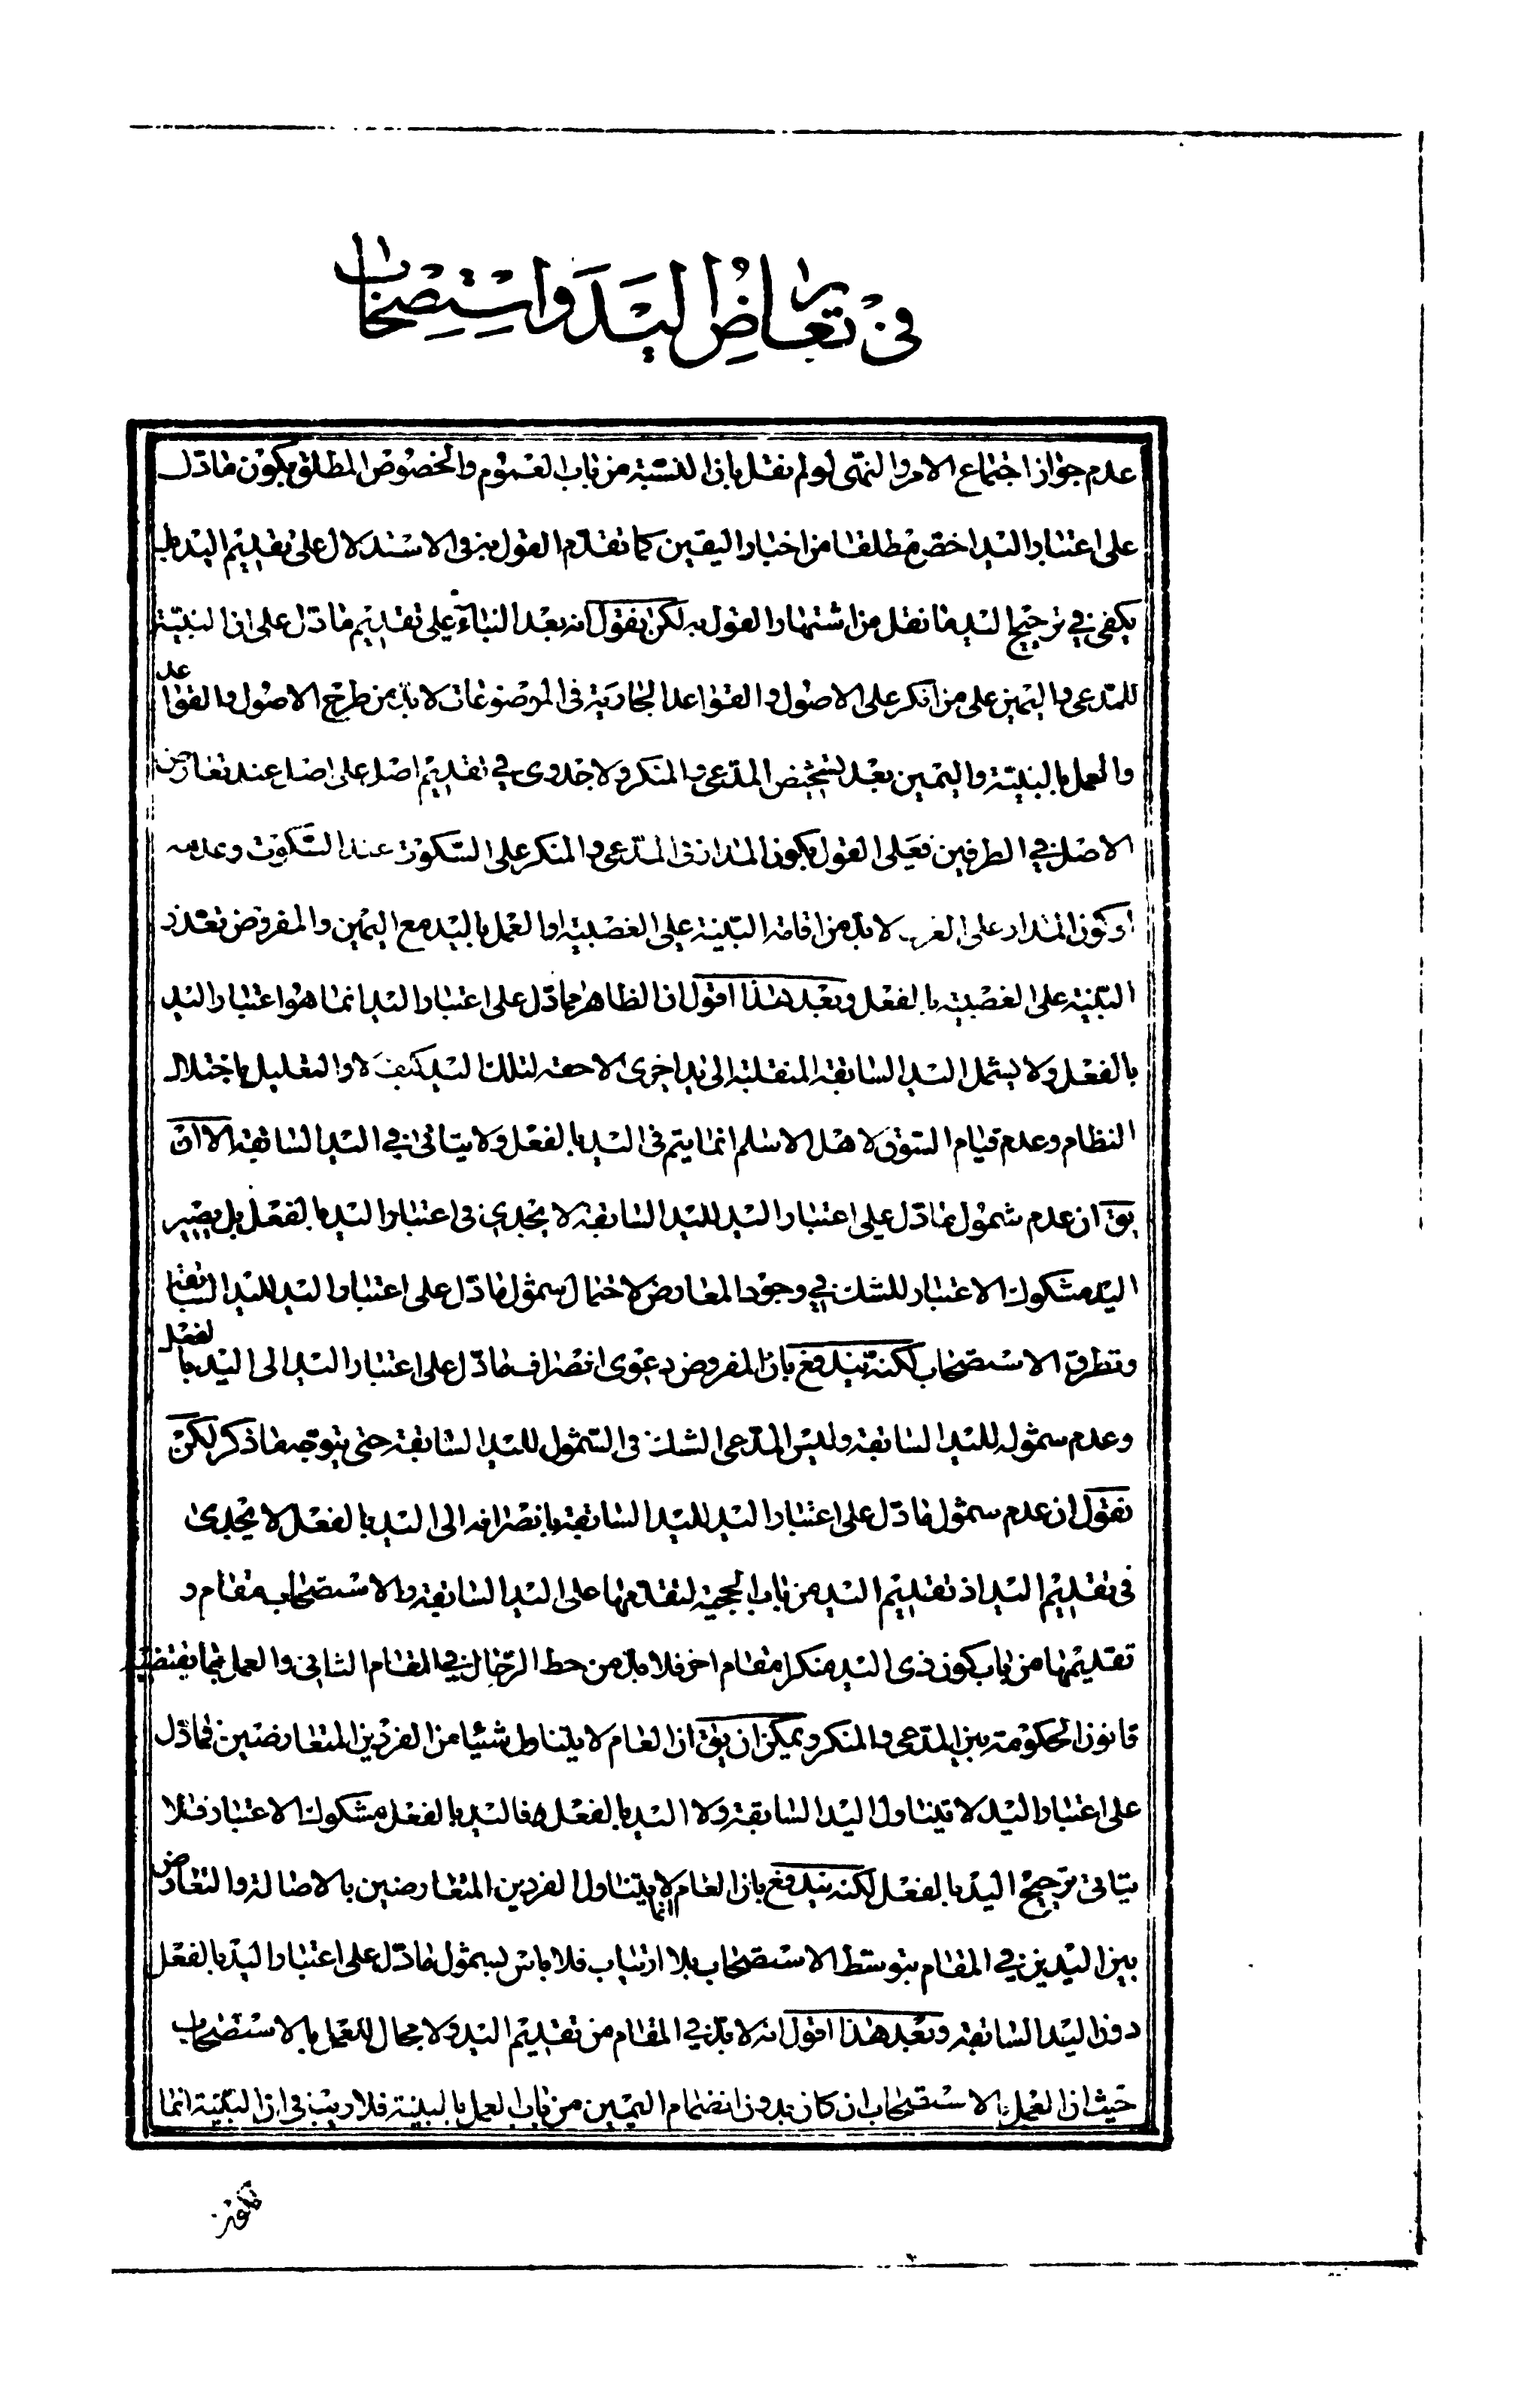 في تعارض اليد واستصحاب
عدم جواز اجتماع الامر والنهى لو لم نقل بان النسبة من باب العموم والخصوص المطلق بكون ما دل
على اعتبار اليد اخص مطلقا من اخبار اليقين كما تقدم القول به فى الاستدلال على تقديم اليد بل
يكفى في ترجيح اليد ما نقل من اشتهار القول به لكن نقول انه بعد البناء على تقديم ما دل على ان البينة
للمدعى واليمين على من انكر على الاصول والقواعد الجارية فى الموضوعات لا بد من طرح الاصول والقواعد
والعمل بالبينة واليمين بعد تشخيص المدعى والمنكر ولا جدوى في تقديم اصل على اصل عند تعارض
الاصل في الطرفين فعلى القول بكون المدار فى المدعى والمنكر على السكوت عند السكوت وعدمه
او كون المدار على العرف لا بد من اقامة البينة على الغصبية او العمل باليد مع اليمين والمفروض تعذر
البينة على الغصبية بالفعل وبعد هذا اقول ان الظاهر مما دل على اعتبار اليد انما هو اعتبار اليد
بالفعل ولا يشمل اليد السابقة المنقلبة الى يد اخرى لاحقة لتلك اليد كيف لا والتعليل باختلال
النظام وعدم قيام السوق لاهل الاسلام انما يتم فى اليد بالفعل ولا يتاتى في اليد السابقة الا ان
يق ان عدم شمول ما دل على اعتبار اليد لليد السابقة لا يجدي فى اعتبار اليد بالفعل بل يصير
اليد مشكوك الاعتبار للشك في وجود المعارض لاحتمال شمول ما دل على اعتبار اليد لليد السابقة
وتطرق الاستصحاب لكنه يندفع بان المفروض دعوى انصراف ما دل على اعتبار اليد الى اليد بالفعل
وعدم شموله لليد السابقة وليس المدعى الشك فى الشمول لليد السابقة حتى يتوجه ما ذكر لكن
نقول ان عدم شمول ما دل على اعتبار اليد لليد السابقة بانصرافه الى اليد بالفعل لا يجدى
فى تقديم اليد اذ تقديم اليد من باب الحجية لتقدمها على اليد السابقة والاستصحاب مقام و
تقديمها من باب كون ذى اليد منكرا مقام اخر فلا بد من حط الرحال في المقام الثانى والعمل بما يقتضيه
قانون الحكومة بين المدعى والمنكر ويمكن ان يق ان العام لا يتناول شيئا من الفردين المتعارضين فما دل
على اعتبار اليد لا يتناول اليد السابقة ولا اليد بالفعل فاليد بالفعل مشكوك الاعتبار فلا
يتاتى ترجيح اليد بالفعل لكنه يندفع بان العام انما لا يتناول الفردين المتعارضين بالاصالة والتعارض
بين اليدين في المقام بتوسط الاستصحاب بلا ارتياب فلا باس بشمول ما دل على اعتبار اليد بالفعل
دون اليد السابقة وبعد هذا اقول انه لا بد في المقام من تقديم اليد ولا مجال للعمل بالاستصحاب
حيث ان العمل بالاستصحاب ان كان بدون انضمام اليمين من باب العمل بالبينة فلا ريب فى ان البينة انما